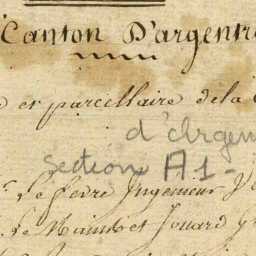 Canton D'argentr
e et parcellaire de la
d'Argen
Section A1-
r. Le fevre Ingenieur V
. Le Maind et Jouard G